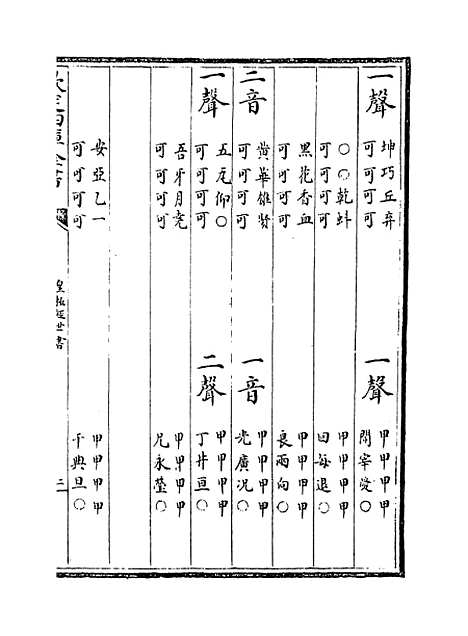 一聲
坤巧丘弃
可可可可
一聲
甲甲甲甲
開宰愛○
○○乾蚪
可可可可
甲甲甲甲
回每退○
黑花香血
可可可可
甲甲甲甲
良兩向○
二音
黃華雄賢
可可可可
一音
甲甲甲甲
光廣况○
一聲
五瓦仰○
可可可可
二聲
甲甲甲甲
丁井亘○
吾牙月堯
可可可可
甲甲甲甲
兄永瑩○
安亞乙一
可可可可
甲甲甲甲
千典旦○
欽定四庫全書
皇極經世書
三